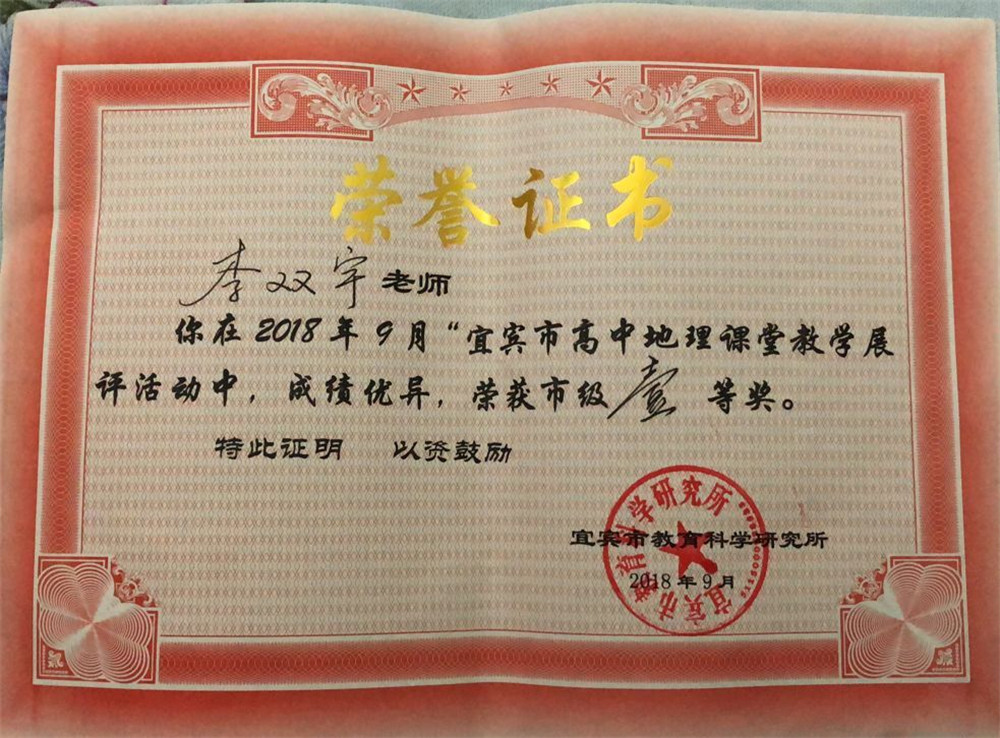 荣誉证书
李双宇老师
你在2018年9月“宜宾市高中地理课堂教学展
评活动中，成绩优异，荣获市级壹等奖。
特此证明 以资鼓励
宜宾市教育科学研究所
2018年9月
宜宾市教育科学研究所